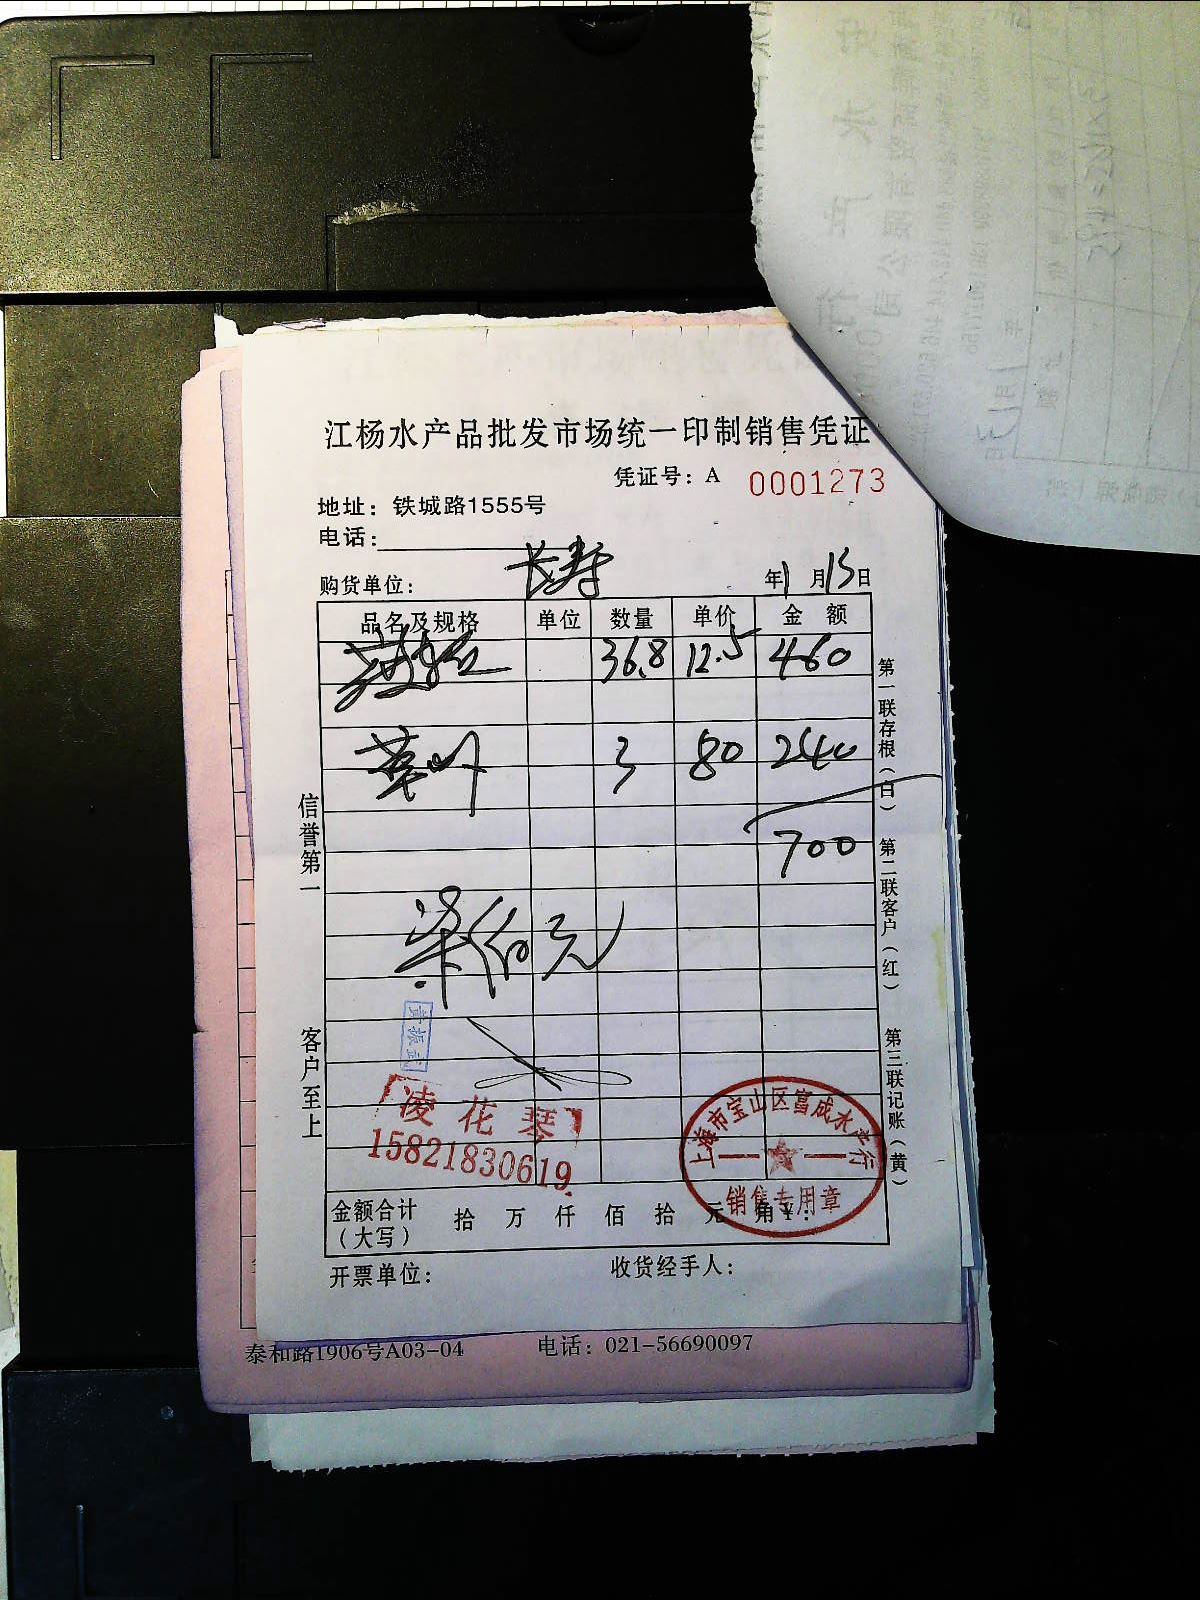 江杨水产品批发市场统一印制销售凭证
凭证号：A 0001273
地址：铁城路1555号
电话：
购货单位： 长寿 年1月13日
品名及规格 单位 数量 单价 金额
36.8 12.5 460
3 80 240
700
柒佰元
信誉第一
客户至上
第一联存根（白）
第二联客户（红）
第三联记账（黄）
黄振武
凌花琴
15821830619
上海市宝山区富成水产行
销售专用章
金额合计（大写） 拾 万 仟 佰 拾 元 角 ¥：
开票单位： 收货经手人：
泰和路1906号A03-04 电话：021-56690097